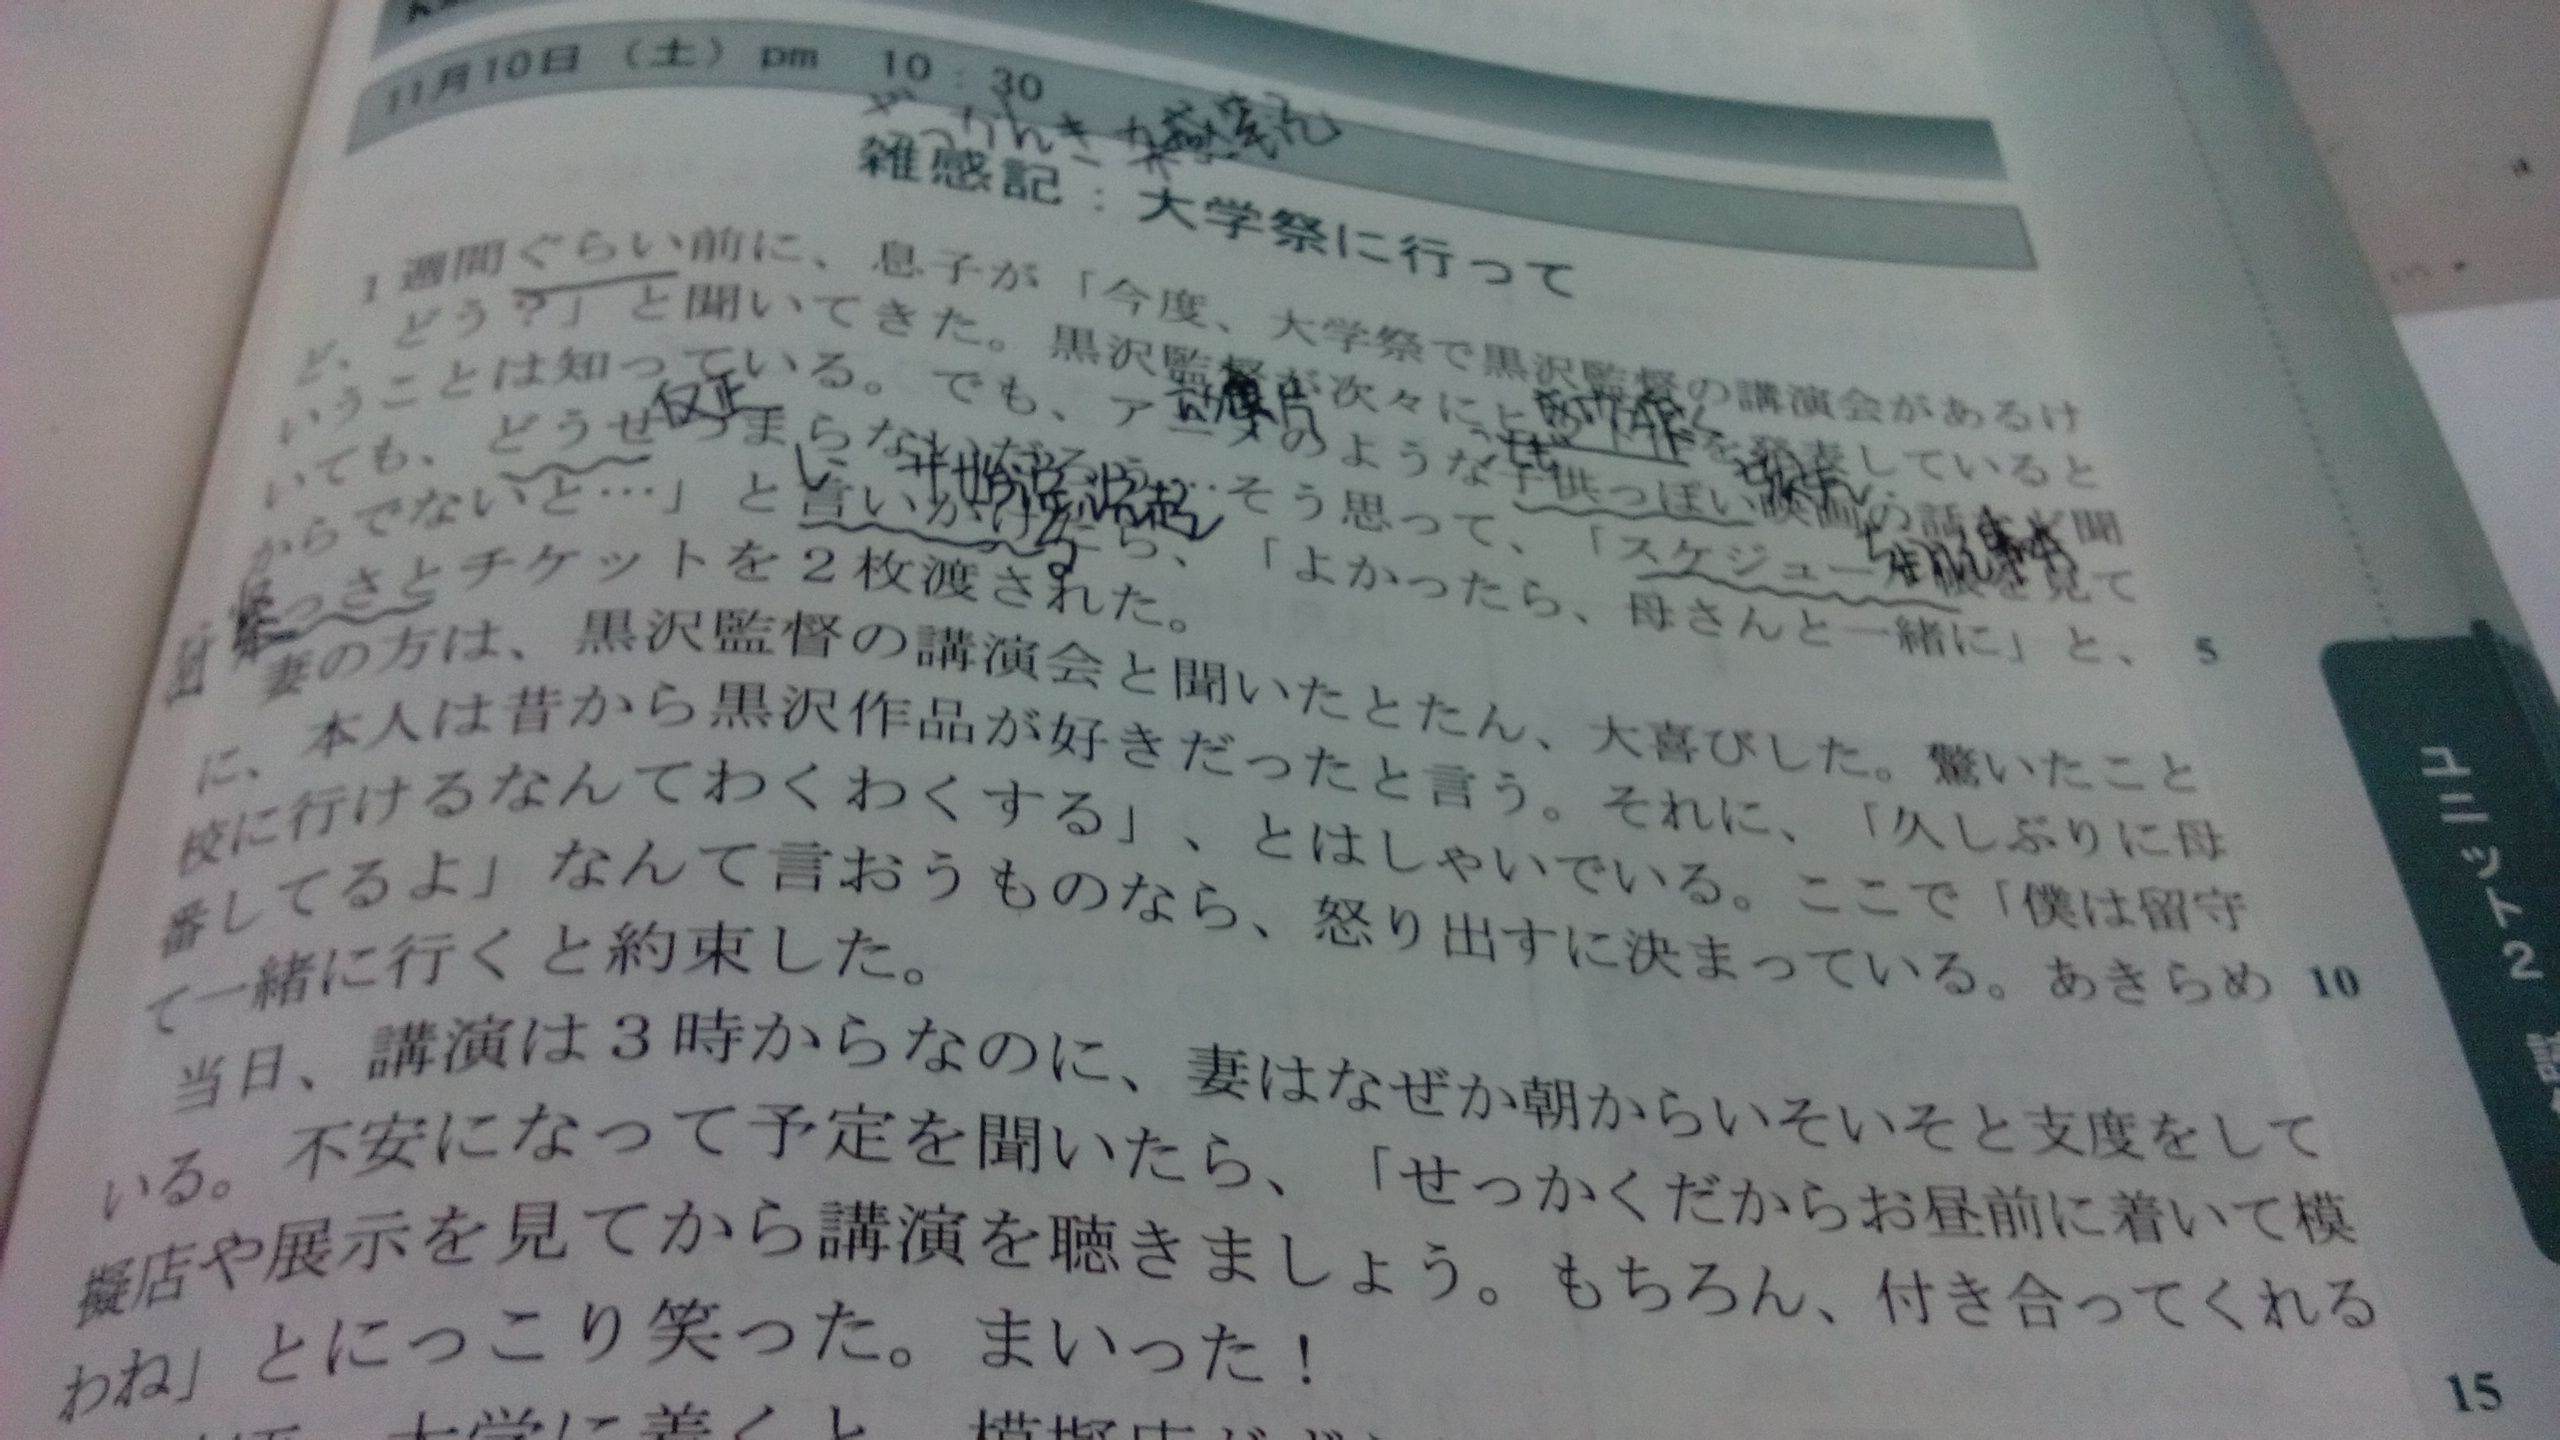 11月10日（土）pm 10：30
ざっかんき
雑感記：大学祭に行って
1週間ぐらい前に、息子が「今度、大学祭で黒沢監督の講演会があるけ
ど、どう？」と聞いてきた。黒沢監督が次々にヒットを発表していると
いうことは知っている。でも、アニメのような子供っぽい映画の話など聞
仅正
いても、どうせつまらないだろう…そう思って、「スケジュールを見て
からでないと…」と言いかけたら、「よかったら、母さんと一緒に」と、
さっさとチケットを2枚渡された。
5
妻の方は、黒沢監督の講演会と聞いたとたん、大喜びした。驚いたこと
に、本人は昔から黒沢作品が好きだったと言う。それに、「久しぶりに母
校に行けるなんてわくわくする」、とはしゃいでいる。ここで「僕は留守
番してるよ」なんて言おうものなら、怒り出すに決まっている。あきらめ
10
て一緒に行くと約束した。
当日、講演は3時からなのに、妻はなぜか朝からいそいそと支度をして
いる。不安になって予定を聞いたら、「せっかくだからお昼前に着いて模
擬店や展示を見てから講演を聴きましょう。もちろん、付き合ってくれる
わね」とにっこり笑った。まいった！
15
大学に着くと、模擬店が
ユニット2